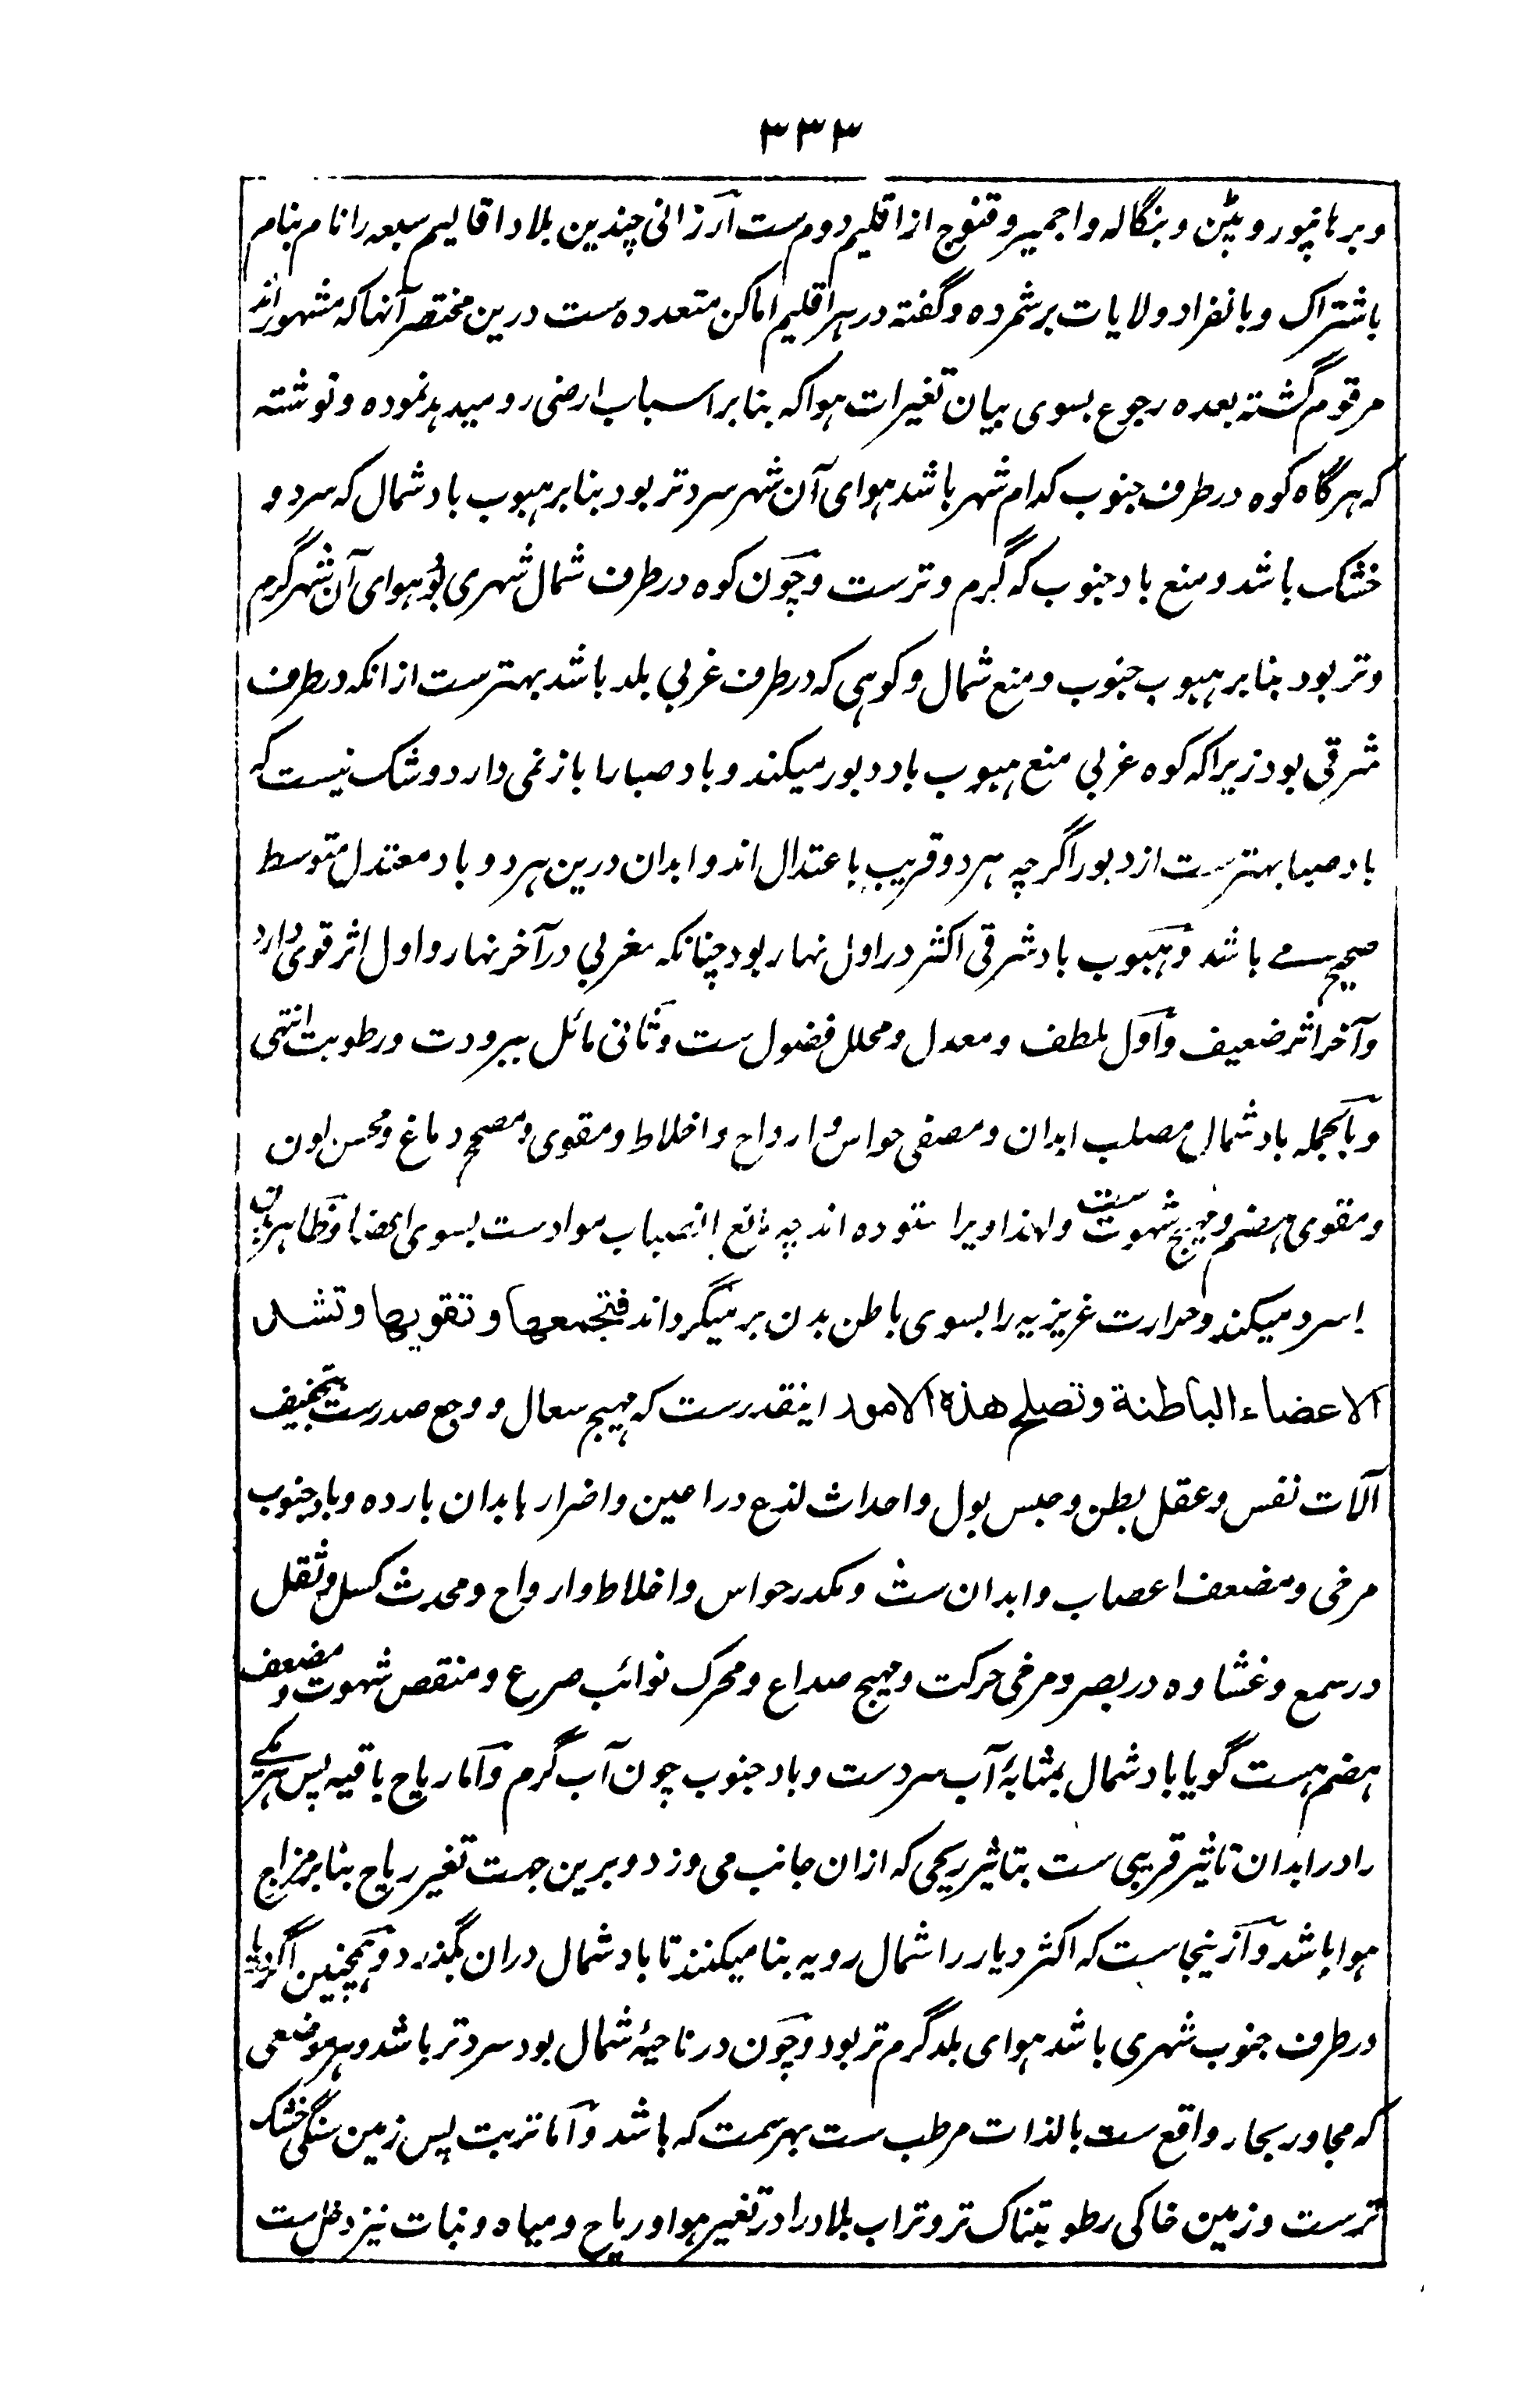 ۳۳۳
و برهانپور و پٹن و بنگاله و اجمیر و قنوج از اقلیم دوم ست ارزانی چندین بلاد اقالیم سبعه را نام بنام
باشتراک و بانفراد ولایات برشمرده و گفته در هر اقلیم اماکن متعدده ست درین مختصر آنها که مشهور اند
مرقوم گشته بعده رجوع بسوی بیان تغیرات هوا که بنابر اسباب ارضی رو میدهد نموده و نوشته
که هرگاه کوه در طرف جنوب کدام شهر باشد هوای آن شهر سردتر بود بنابر هبوب باد شمال که سرد و
خشک باشد و منع باد جنوب که گرم و ترست و چون کوه در طرف شمال شهری بود هوای آن شهر گرم
و تر بود بنابر هبوب جنوب و منع شمال و کوهی که در طرف غربی بلد باشد بهترست از انکه در طرف
شرقی بود زیرا که کوه غربی منع هبوب باد دبور میکند و باد صبا را باز نمی دارد و شک نیست که
باد صبا بهترست از دبور اگرچه هر دو قریب باعتدال اند و ابدان درین هر دو باد معتدل متوسط
صحیح مے باشد و هبوب باد شرقی اکثر در اول نهار بود چنانکه مغربی در آخر نهار و اول اثر قوی دارد
و آخر اثر ضعیف و اول ملطف و معدل و محلل فضول ست و ثانی مائل ببرودت و رطوبت انتهی
و بالجمله باد شمال مصلب ابدان و مصفی حواس و ارواح و اخلاط و مقوی و مصحح دماغ و محسن لون
و مقوی هضم و مهیج شهوت ست و لهذا ویرا ستوده اند چه مانع انصباب موادست بسوی اعضا و ظاهر بدن
را سرد میکند و حرارت غریزیه را بسوی باطن بدن برمیگرداند فتجمعها و تقویها و تشد
الاعضاء الباطنة و تصلح هذه الامور اینقدرست که مهیج سعال و وجع صدرست بتجفیف
آلات نفس و عقل بطن و حبس بول و احداث لذع در اعین و اضرار بابدان بارده و باد جنوب
مرخی و مضعف اعصاب و ابدان ست و مکدر حواس و اخلاط و ارواح و محدث کسل و ثقل
در سمع و غشاوه در بصر و مرخی حرکت و مهیج صداع و محرک نوائب صرع و منقص شهوت و مضعف
هضم هست گویا باد شمال بمثابهٔ آب سردست و باد جنوب چون آب گرم و اما ریاح باقیه پس هر یکے
را در ابدان تاثیر قریبی ست بتاثیر ریحی که ازان جانب می وزد و برین جهت تغیر ریاح بنابر مزاج
هوا باشد و ازینجاست که اکثر دیار را شمال رویه بنا میکنند تا باد شمال دران بگذرد و همچنین اگر دریا
در طرف جنوب شهری باشد هوای بلد گرم تر بود و چون در ناحیهٔ شمال بود سردتر باشد و هر موضعی
که مجاور بحار واقع ست بالذات مرطب ست بهر سمت که باشد و اما تربت پس زمین سنگی خشک
ترست و زمین خاکی رطوبتناک تر و تراب بلاد را در تغیر هوا و ریاح و میاه و نبات نیز دخل ست